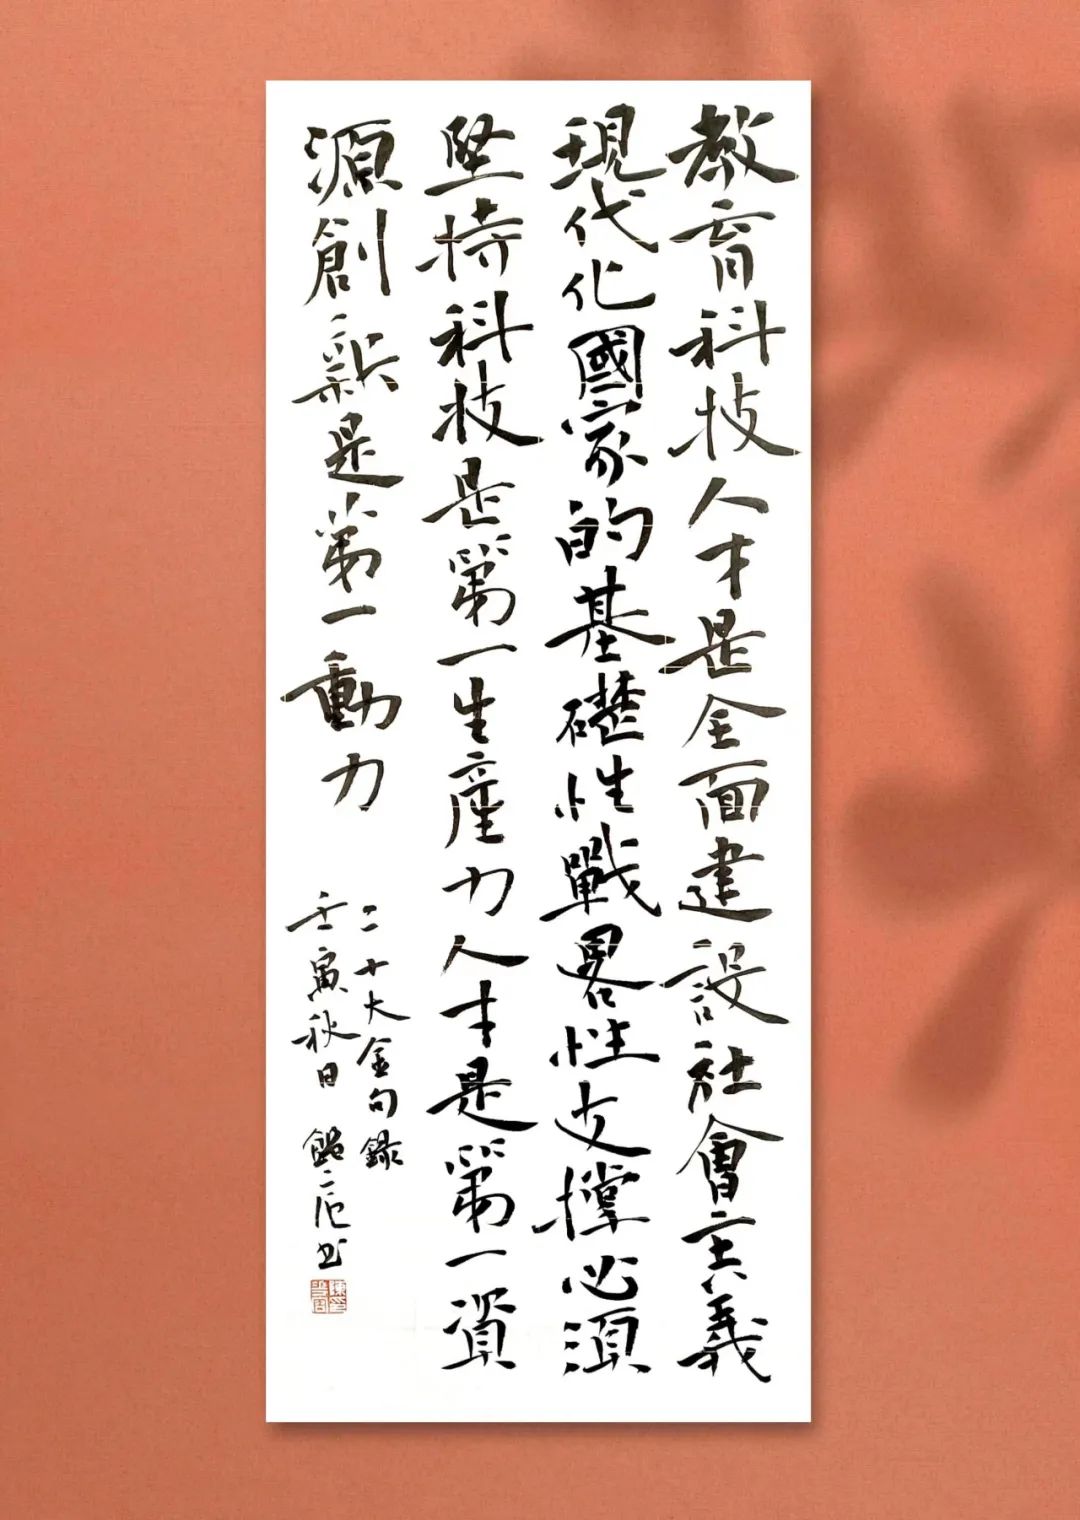 教育科技人才是全面建設社會主義
現代化國家的基礎性戰畧性支撐必須
堅持科技是第一生產力人才是第一資
源創新是第一動力
二十大金句錄
壬寅秋日 书